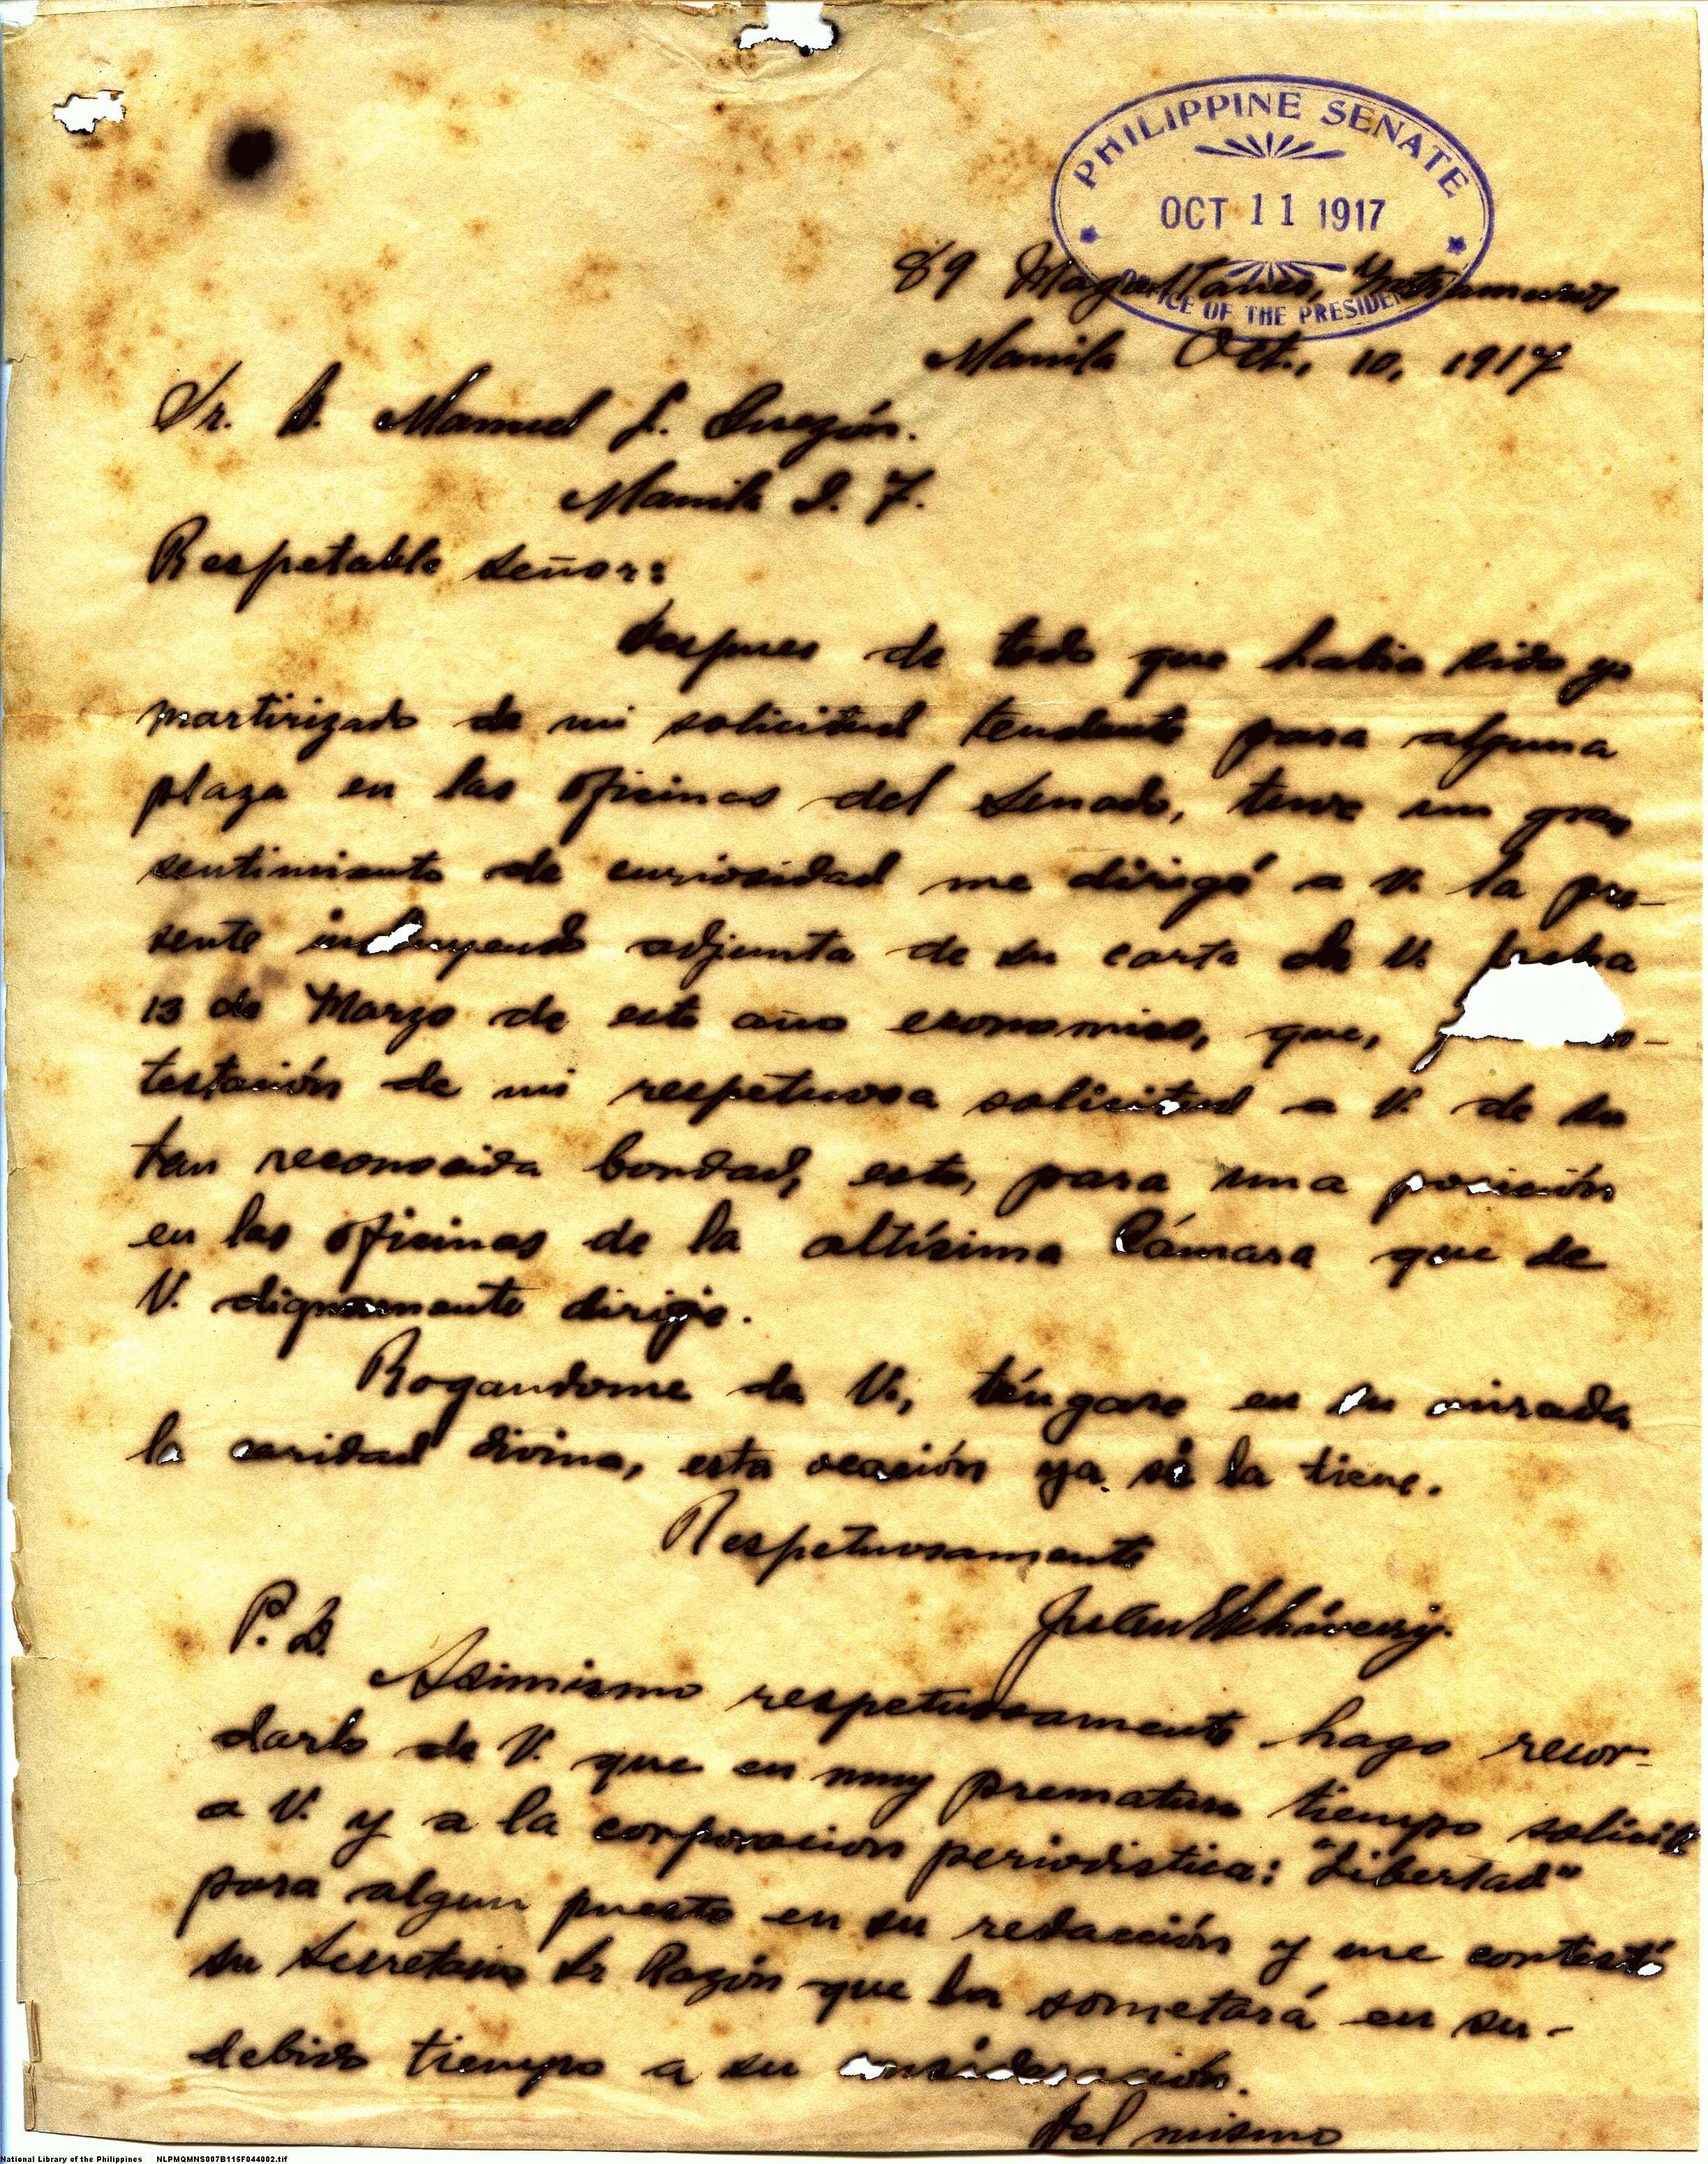 PHILIPPINE SENATE
OCT 11 1917
OFFICE OF THE PRESIDENT
89 Magallanes, Yntramuros
Manila Oct., 10, 1917
Sr. D. Manuel L. Quezón.
Manila I. F.
Respetable Señor:
Despues de todo que habia sido yo
martirizado de mi solicitud tendente para alguna
plaza en las oficinas del Senado, tuve un gran
sentimiento de curiosidad me dirigé a V. la pre-
sente incluyendo adjunta de su carta de V. fecha
13 de Marzo de este año economico, que,
testación de mi respetuosa solicitud a V. de su
tan reconocida bondad, esto, para una posición
en las oficinas de la altísima Cámara que de
V. dignamente dirige.
Rogandome de V., téngase en su mirada
la caridad divina, esta ocasión ya si la tiene.
Respetuosamente
P. D.
Asimismo respetuosamente hago recor-
darlo de V. que en muy prematuro tiempo solicité
a V. y a la corporacion periodistica: "Libertad"
para algun puesto en su redacción y me contestó
su Secretario Sr Razón que la sometará en su-
debido tiempo a su consideración.
Del mismo
National Library of the Philippines NLPMQMNS007B115F044002.tif